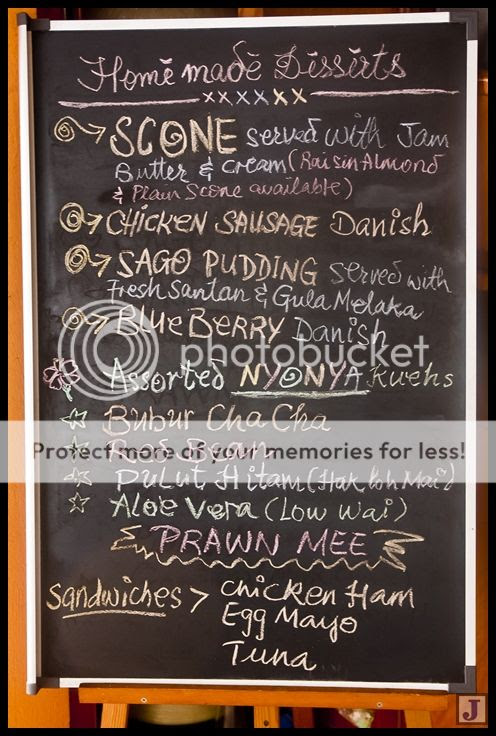 Home made Dissirts
xxxxxx
SCONE served with Jam
Butter & cream (Raisin Almond
& Plain Scone available)
CHICKEN SAUSAGE Danish
SAGO PUDDING served with
Fresh Santan & Gula Melaka
BLUEBERRY Danish
photobucket
Assorted NYONYA Kuehs
Bubur Cha Cha
Protect more of your memories for less!
Red Bean
Pulut Hitam (Hak Loh Mai)
Aloe Vera (Low Wai)
PRAWN MEE
Sandwiches > Chicken Ham
Egg Mayo
Tuna
J